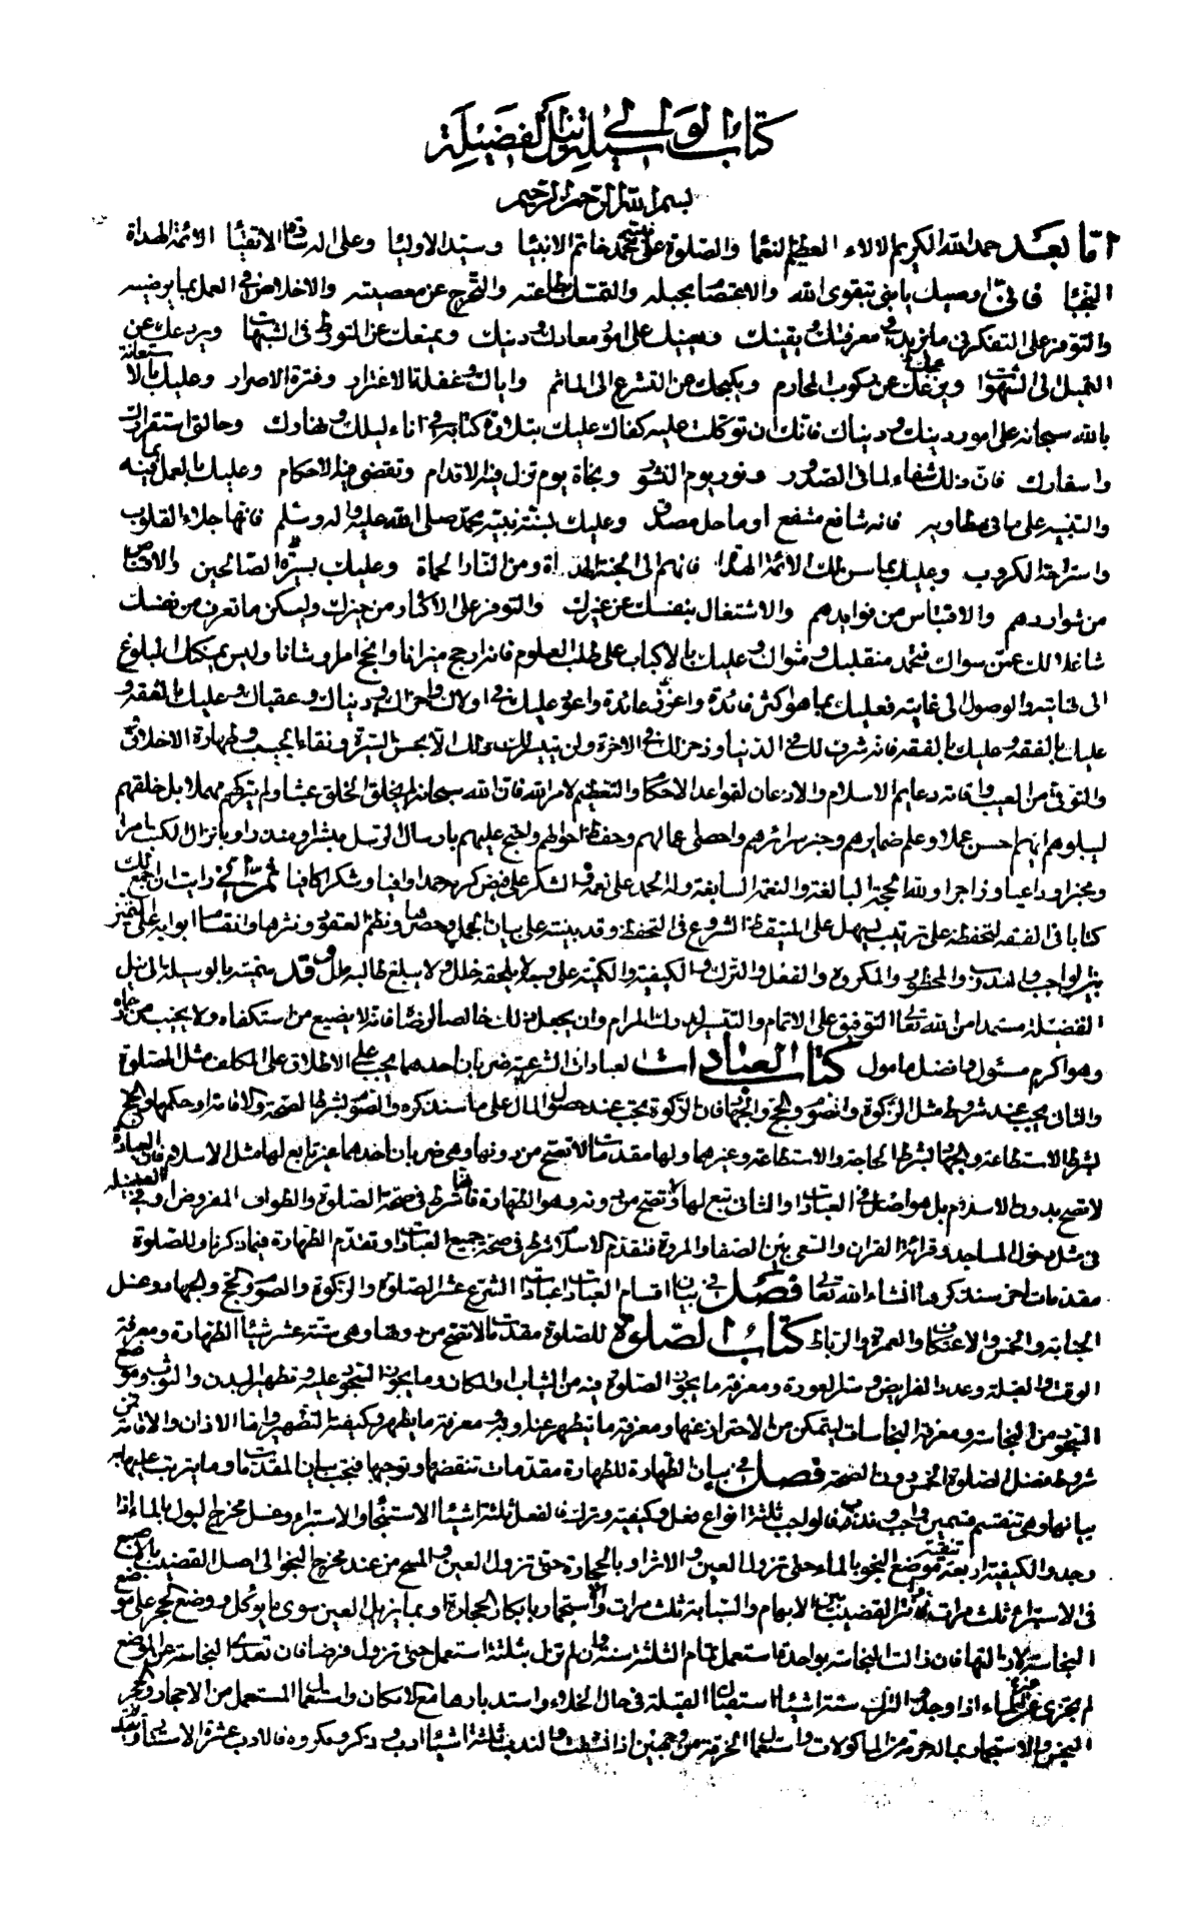 كتاب الوسيلة الى نيل الفضيلة
بسم الله الرحمن الرحيم
اما بعد حمد الله الكريم الالاء العظيم النعما والصلوة على محمد خاتم الانبيا وسيد الاوليا وعلى اله الاتقيا الائمة الهداة
النجبا فانى اوصيك يا بنى بتقوى الله والاعتصام بحبله والتمسك بطاعته والتحرج عن معصيته والاخلاص فى العمل بما يرضيه
والتوفر على التفكر فى ما يزيد فى معرفتك ويقينك ويعينك على امور معادك ودينك ويمنعك عن التورط فى الشبهات ويردعك عن
التميل الى الشهوات ويزعك عن ركوب المحارم ويكبحك عن التسرع الى الماثم واياك وغفلة الاغترار وفترة الاصرار وعليك بالاستعانة
بالله سبحانه على امور دينك ودنياك فانك ان توكلت عليه كفاك وعليك بتلاوة كتابه فى اناء ليلك ونهارك وحالتى استقرارك
واسفارك فان ذلك شفاء لما فى الصدور ونور يوم النشور ونجاة يوم تزل فيه الاقدام وتقضى فيه الاحكام وعليك بالعمل بما فيه
والتنبيه على ما فى مطاويه فانه شافع مشفع او ماحل مصدق وعليك بسنة نبيه محمد صلى الله عليه واله وسلم فانها جلاء القلوب
واستراحة الكروب وعليك بما سن لك الائمة الهداة فانهم الى الجنة الهداة ومن النار الحماة وعليك بسيرة الصالحين والاقتناص
من شواردهم والاقتباس من فوايدهم والاشتغال بنفسك عن غيرك والتوفر على الاكثار من خيرك وليكن ما تعرف من نفسك
شاغلا لك عمن سواك فتحمد منقلبك ومثواك وعليك بالاكباب على طلب العلوم فانه ارجح ميزانا وانجح امل وشانا وليس يمكنك البلوغ
الى نهايته والوصول الى غايته فعليك بما هو اكثر فائدة واعز عائدة واعود عليك فى اولاك واخراك ودنياك وعقباك وعليك بالفقه و
عليك بالفقه وعليك بالفقه فانه شرف لك فى الدنيا وذخر لك فى الاخرة ولن يتيسر لك ذلك الا بحسن السيرة ونقاء الجيب وطهارة الاخلاق
والتوقى من العيب فانه دعايم الاسلام والاذعان لقواعد الاحكام والتعظيم لامر الله فان الله سبحانه لم يخلق الخلق عبثا ولم يتركهم مهملا بل خلقهم
ليبلوهم ايهم احسن عملا وعلم ضمايرهم وخبر سرائرهم واحصى اعمالهم وحفظ احوالهم واحتج عليهم بارسال الرسل مبشرا ومنذرا وبانزال الكتب امرا
ومخبرا وداعيا وزاجرا ولله الحجة البالغة والنعمة السابغة وله الحمد على نعمه والشكر على فيض كرمه حمدا وافيا وشكرا كافيا ثم انى رايت ان اجمع لك
كتابا فى الفقه لتحفظه على ترتيب يسهل على المتيقظ الشروع فى التحفظ وقد بنيته على بيان الجمل وحصرها ونظم العقود ونثرها وانقسام ابوابه على تميز
بين الواجب والمندوب والمحظور والمكروه والفعل والترك والكيفية والكمية على وجه لا يلحقه خلل ولا يبلغ طالبه ملل وقد سميته بالوسيلة الى نيل
الفضيلة مستمدا من الله تعالى التوفيق على الاتمام والتيسير لدرك المرام وان يجعل ذلك خالصا لرضاه فانه لا يضيع من استكفاه ولا يخيب من رجاه
وهو اكرم مسئول وافضل مامول كتاب العبادات العبادات الشرعية ضربان احدهما يجب على الاطلاق على المكلف مثل الصلوة
والثانى يجب عند شروط مثل الزكوة والصوم والحج والجهاد فان الزكوة تجب عند حصول المال على ما سنذكره والصوم بشرط الصحة والاقامة او حكمها والحج
بشرط الاستطاعة والجهاد بشرط الحاجة والاستطاعة وغيرهما ولها مقدمات لا تصح من دونها وهى ضربان احدهما غير تابع لها مثل الاسلام فان العبادة
لا تصح بدون الاسلام بل هو اصل فى العبادات والثانى تبع لها لا تصح من دونه وهو الطهارة فانها شرط فى صحة الصلوة والطواف المفروض او الفضيلة
فى مثل دخول المساجد وقرائة القران والسعى بين الصفا والمروة فتقدم الاسلام شرط فى صحة جميع العبادات وتقدم الطهارة فيما ذكرناه وللصلوة
مقدمات اخر سنذكرها انشاء الله تعالى فصل فى بيان اقسام العبادات عبادات الشرع عشر الصلوة والزكوة والصوم والحج والجهاد وغسل
الجنابة والخمس والاعتكاف والعمرة والرباط كتاب الصلوة للصلوة مقدمات لا تصح من دونها وهى ستة عشر شيئا الطهارة ومعرفة
الوقت والقبلة وعدد الفرايض وستر العورة ومعرفة ما يجوز الصلوة فيه من الثياب والمكان وما يجوز السجود عليه وتطهير البدن والثوب وموضع
السجود من النجاسة ومعرفة النجاسات ليتمكن من الاحتراز عنها ومعرفة ما يتطهر عنه وبه ومعرفة ما يطهر وكيفية التطهير واما الاذان والاقامة فمن
شروط فضل الصلوة الخمس دون الصحة فصل فى بيان الطهارة للطهارة مقدمات تنقضها وتوجبها فتجب بيان المقدمات وما يترتب عليها به
بيانها وهى تنقسم قسمين واجب وندب فالواجب ثلثة انواع فعل وكيفية وترك فالفعل ثلثة اشياء الاستنجاء والاستبراء وغسل مخرج البول بالماء اذا
وجد والكيفية اربعة تنقية موضع النجو بالماء حتى تزول العين والاثر او بالحجارة حتى تزول العين والمسح من عند مخرج النجو الى اصل القضيب باصبع
فى الاستبراء ثلث مرات ونتر القضيب بين الابهام والسبابة ثلث مرات والاستجمار بابكار الحجارة او بما يزيل العين سوى ما يؤكل ووضع الحجر على موضع
النجاسة لازالتها فان زالت النجاسة بواحدة استعمل تمام الثلثة سنة وان لم تزل بثلثة استعمل حتى تزول فرضا فان تعدى النجاسة عن الموضع
لم يجزئ غير الماء اذا وجد والترك ستة اشياء استقبال القبلة فى حال الخلاء واستدبارها مع الامكان واستعمال المستعمل من الاحجار والحجر
النجس والاستجمار بما له حرمة من الماكولات واستعمال الخرقة من وجهين اذا نشفت والندب ثلثة اشياء ادب وذكر ومكروه فالادب عشرة الاستتار وتقديم